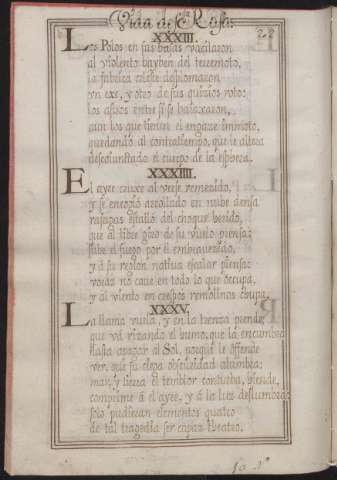 Vida de S.ta Rosa.
22
XXXIII.
Los Polos en sus basas vacilaron
al violento bayben del terremoto,
la fabrica celeste desplomaron
vn exe, y otro de sus quicios roto:
los astros entre sí se barajaron,
aun los que tienen el engaze immoto,
quedando al contratiempo, que le altera
descoiuntado el cuerpo de la esphera.
XXXIIII.
El ayre cruxe al verse remecido,
y se encogió arrollado en nube densa
rafagas estalló del choque herido,
que al libre gozo de su vuelo piensa:
sube el fuego por él embrauezido,
y á su region nativa escalar piensa:
voraz no caue en todo lo que occupa,
y al viento en crespos remolinos chupa.
XXXV.
La llama vuela, y en la trenza prende
que vá rizando el humo, que la encumbra
hasta apagar al Sol, porque le offende
ver, que su ciega obscuridad alumbra:
mar, y tierra el temblor conturba, hiende,
comprime á el ayre, y á la luz deslumbra:
solo pudieran elementos quatro
de tal tragedia ser capaz theatro.